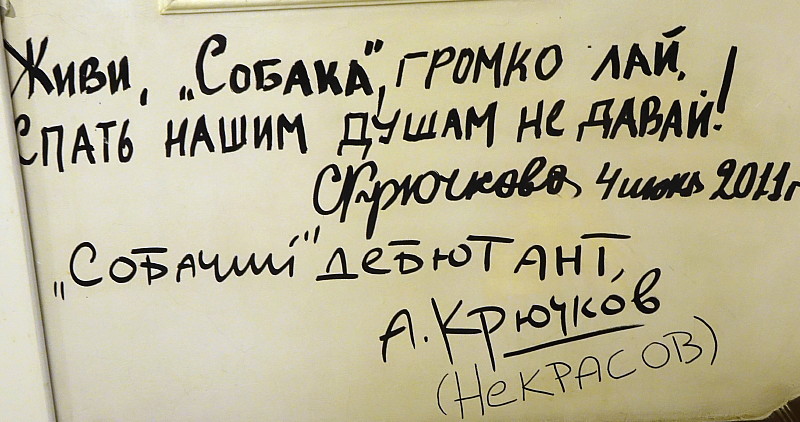 Живи, „Собака", громко лай.
Спать нашим душам не давай!
СКрючкова 4 июня 2011г
„Собачий" дебютант,
А. Крючков
(Некрасов)